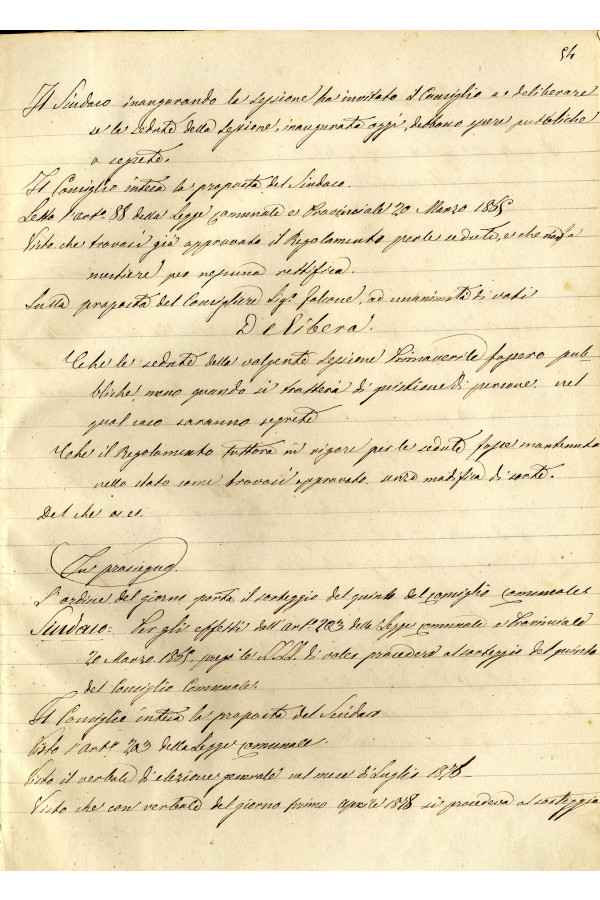 54
Il Sindaco inaugurando la Sessione ha invitato il Consiglio a deliberare
se le sedute della Sessione, inaugurata oggi, debbano essere pubbliche
o segrete.
Il Consiglio intesa la proposta del Sindaco.
Letto l'art.º 88 della Legge Comunale e Provinciale 20 Marzo 1865
Visto che trovasi già approvato il Regolamento per le sedute, e che
mestiere per nessuna rettifica.
Sulla proposta del Consigliere Sig.r Falcone, ad unanimità di voti
Delibera.
Che le sedute della volgente Sessione Primaverile fossero pub-
bliche meno quando si tratterà di quistione di persone, nel
qual caso saranno segrete
Che il Regolamento tuttora in vigore per le sedute fosse mantenuto
nello stato come trovasi approvato senza modifica di sorte.
Del che
In prosieguo.
L'ordine del giorno porta il sorteggio del quinto del Consiglio Comunale
Sindaco: Per gli effetti dell'art.º 203 della Legge Comunale e Provinciale
20 Marzo 1865, prego le S.S.L.L. di voler procedere al sorteggio del quinto
del Consiglio Comunale.
Il Consiglio intesa la proposta del Sindaco
Visto l'art.º 203 della Legge Comunale.
Visto il verbale di elezione generale nel mese di Luglio
Visto che con verbale del giorno primo Aprile 1878 si procedeva al sorteggio